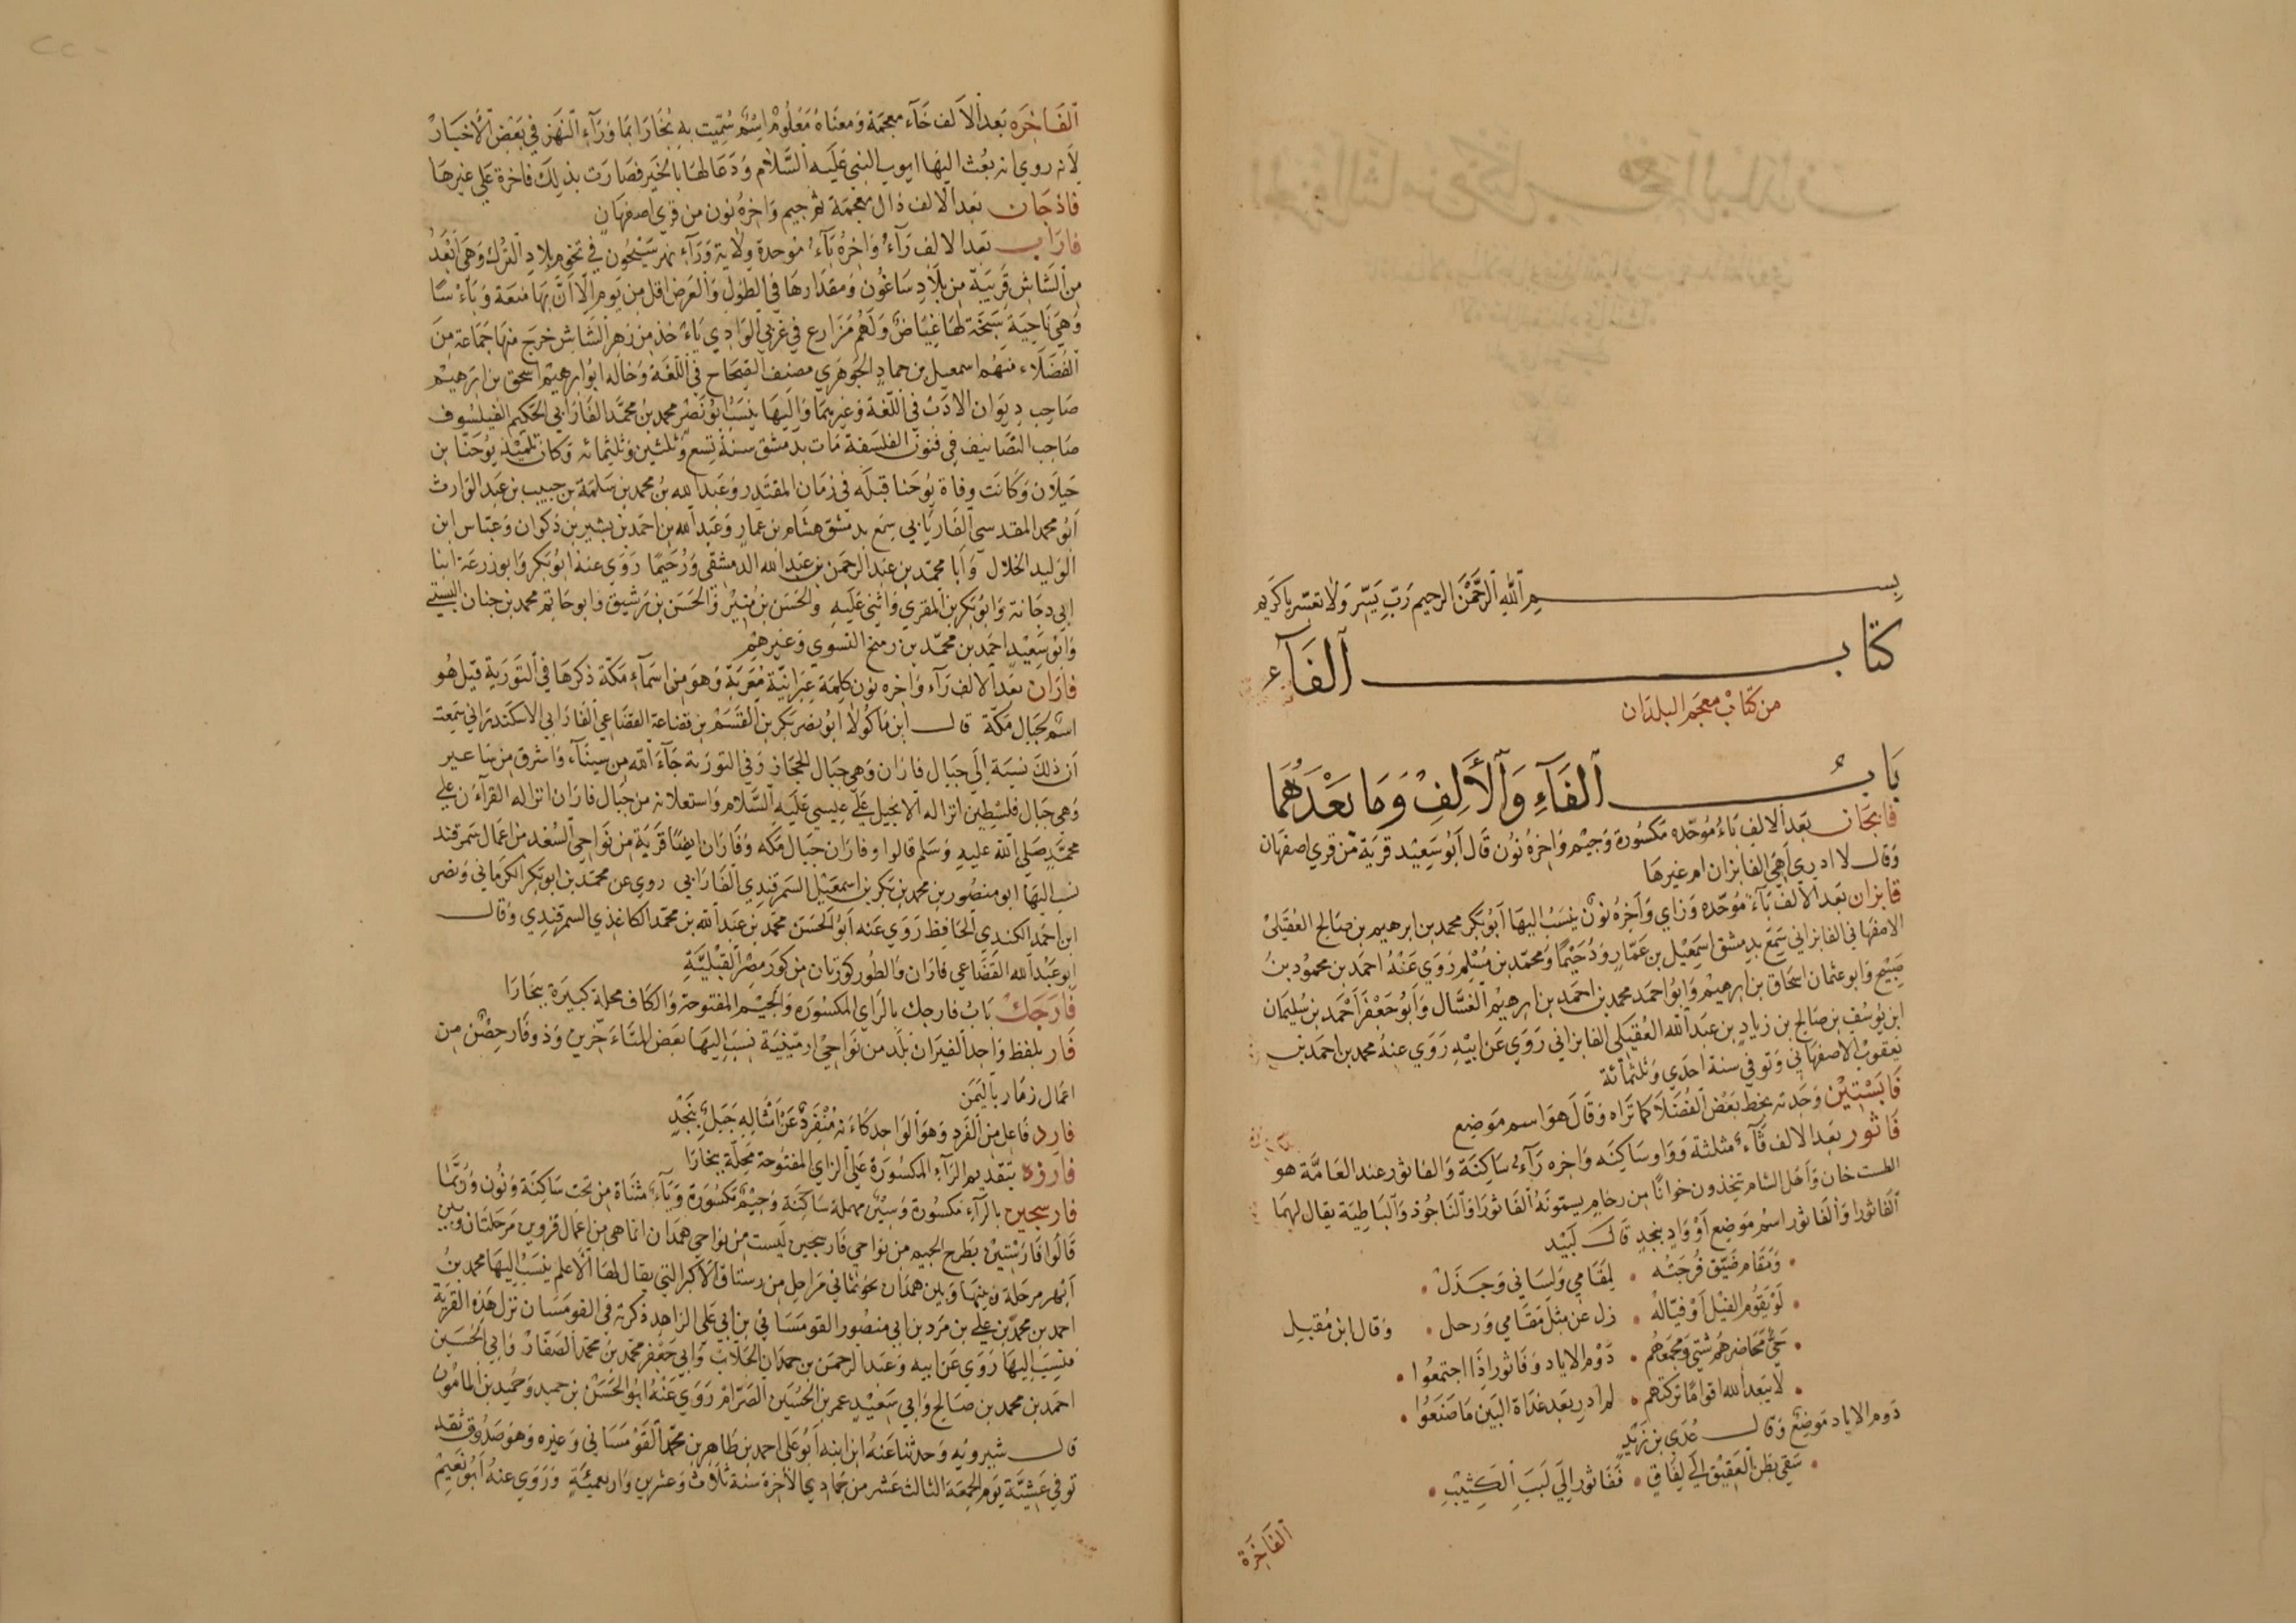 بسم الله الرحمن الرحيم رب يسر ولا تعسر يا كريم
كتاب الفآء
من كتاب معجم البلدان
باب الفآء والألف وما بعدهما
فابجان بعد الالف باء موحده مكسورة وجيم واخره نون قال أبو سعيد قرية من قري اصفهان
وقال لا ادري أهي الفابزان ام غيرها
فابزان بعد الألف بآء موحده وزاي وآخره نون ينسب اليها أبو بكر محمد بن ابرهيم بن صالح العقيلي
الاصفهاني الفابزاني سمع بدمشق اسمعيل بن عمار ودحيما ومحمد بن مسلم روي عنه احمد بن محمود بن
صبيح وابو عثمان اسحاق بن ابرهيم وابو احمد محمد بن احمد بن ابرهيم الغسال وأبو جعفر أحمد بن سليمان
ابن يوسف بن صالح بن زياد بن عبد الله العقيلي الفابزاني روي عن ابيه روي عنه محمد بن احمد بن
يعقوب الاصفهاني وتوفي سنة احدي وثلثمائة
فابستين وجدته بخط بعض الفضلا كما تراه وقال هو اسم موضع
فاثور بعد الالف ثآء مثلثة وواو ساكنه واخره رآء ساكنة والفاثور عند العامة هو
الطست خان وأهل الشام يتخذون خوانا من رخام يسمونه الفاثور والناجوذ والباطية يقال لهما
الفاثور والفاثور اسم موضع أو واد بنجد قال لبيد
ومقام ضيق فرجته • لمقامي ولساني وجدل •
لو يقوم الفيل أو فياله • زل عن مثل مقامي ورحل • وقال ابن مقبل
حي محاضرهم شتي ومجمعهم • دوم الاياد وفاثور إذا اجتمعوا •
لا يبعد الله اقواما تركتهم • لم ادر بعد غداة البين ما صنعوا •
دوم الاياد موضع وقال عدي بن زيد
سقي بطن العقيق إلي لفاق • ففاثور إلي لبب الكثيب •
الفاخرة
الفاخره بعد الألف خآء معجمة ومعناه معلوم اسم سميت به بخارا بما ورآء النهر في بعض الأخبار
لأنه روي انه بعث اليها ايوب النبي عليه السلام ودعا لها بالخير فصارت بذلك فاخرة علي غيرها
فاذجان بعد الالف ذال معجمة ثم جيم واخره نون من قري اصفهان
فاراب بعد الالف رآء واخره بآء موحدة ولاية ورآء نهر سيحون في تخوم بلاد الترك وهي أبعد
من الشاش قريبة من بلاد ساغون ومقدارها في الطول والعرض اقل من يوم الا أن بها منعة وبأسا
وهي ناحية سبخة لها غياض ولهم مزارع في غربي الوادي ياءخذ من نهر الشاش خرج منها جماعة من
الفضلاء منهم اسمعيل بن حماد الجوهري مصنف الصحاح في اللغة وخاله ابو ابرهيم اسحق بن ابرهيم
صاحب ديوان الادب في اللغة وغيرهما واليها ينسب أبو نصر محمد بن محمد الفارابي الحكيم الفيلسوف
صاحب التصانيف في فنون الفلسفة مات بدمشق سنة تسع وثلثين وثلثمائه وكان تلميذ يوحنا بن
حيلان وكانت وفاة يوحنا قبله في زمان المقتدر وعبد الله بن محمد بن سلمة بن حبيب بن عبد الوارث
أبو محمد المقدسي الفاريابي سمع بدمشق هشام بن عمار وعبد الله بن احمد بن بشير بن ذكوان وعباس ابن
الوليد الخلال وأبا محمد بن عبد الرحمن بن عبد الله الدمشقي ورحيما روي عنه ابو بكر وابو زرعة ابنا
ابي دجانة وابو بكر بن المقري واثني عليه والحسن بن منير والحسن بن رشيق وابو حاتم محمد بن حبان البستي
وابو سعيد احمد بن محمد بن رميح النسوي وغيرهم
فاران بعد الالف رآء واخره نون كلمة عبرانية معربة وهو من اسمآء مكة ذكرها في التورية قيل هو
اسم لجبال مكة قال ابن ماكولا ابو نصر بكر بن القسم بن قضاعة القضاعي الفارابي الاسكندراني سمعت
أن ذلك نسبة إلي جبال فاران وهي جبال الحجاز وفي التورية جآء الله من سينآء واشرق من ساعير
وهي جبال فلسطين انزاله الانجيل علي عيسي عليه السلام واستعلانه من جبال فاران انزاله القرآن علي
محمد صلي الله عليه وسلم قالوا وفاران جبال مكه وفاران ايضا قرية من نواحي السغد من اعمال سمرقند
نسب اليها ابو منصور بن محمد بن بكر بن اسمعيل السمرقندي الفارابي روي عن محمد بن ابو بكر الكرماني ونصر
ابن احمد الكندي الحافظ روي عنه أبو الحسن محمد بن عبد الله بن محمد الكاغذي السمرقندي وقال
ابو عبد الله القضاعي فاران والطور كورتان من كور مصر القبلية
فارجك باب فارجك بالراي المكسوره والجيم المفتوحة والكاف محلة كبيرة ببخارا
فار بلفظ واحد الفيران بلد من نواحي ارمينية نسب اليها بعض المتاءخرين وذو فار حصن من
اعمال زمار باليمن
فارد فاعل من الفرد وهو الواحد كاءنه منفرد عن أمثاله جبل بنجد
فارزه بتقديم الرآء المكسورة علي الزاي المفتوحة محلة ببخارا
فارسجين بالرآء مكسورة وسين مهملة ساكنة وجيم مكسورة ويآء مثناة من تحت ساكنة ونون وربما
قالوا فارستين بطرح الجيم من نواحي فارسجين ليست من نواحي همدان انما هي من اعمال قزوين مرحلتان وبين
أبهر مرحلة وبينها وبين همدان نحو ثماني مراحل من رستاق الآكر التي يقال لها الأعلم ينسب اليها محمد بن
احمد بن محمد بن علي بن مرد بن ابي منصور القومساني بن ابي علي الزاهد ذكرته في القومسان نزل هذه القرية
فنسب اليها روي عن ابيه وعبد الرحمن بن حمدان الجلاب وابي جعفر محمد بن محمد الصفار وابي الحسين
احمد بن محمد بن صالح وابي سعيد عمر بن الحسين الصرام روي عنه ابو الحسن بن حميد وحميد بن المامون
قال شيرويه وحدثنا عنه ابن ابنه ابو علي احمد بن طاهر بن محمد القومساني وغيره وهو صدوق ثقة
توفي عشية يوم الجمعة الثالث عشر من جمادي الآخرة سنة ثلاث وعشرين واربعمئة وروي عنه أبو نعيم